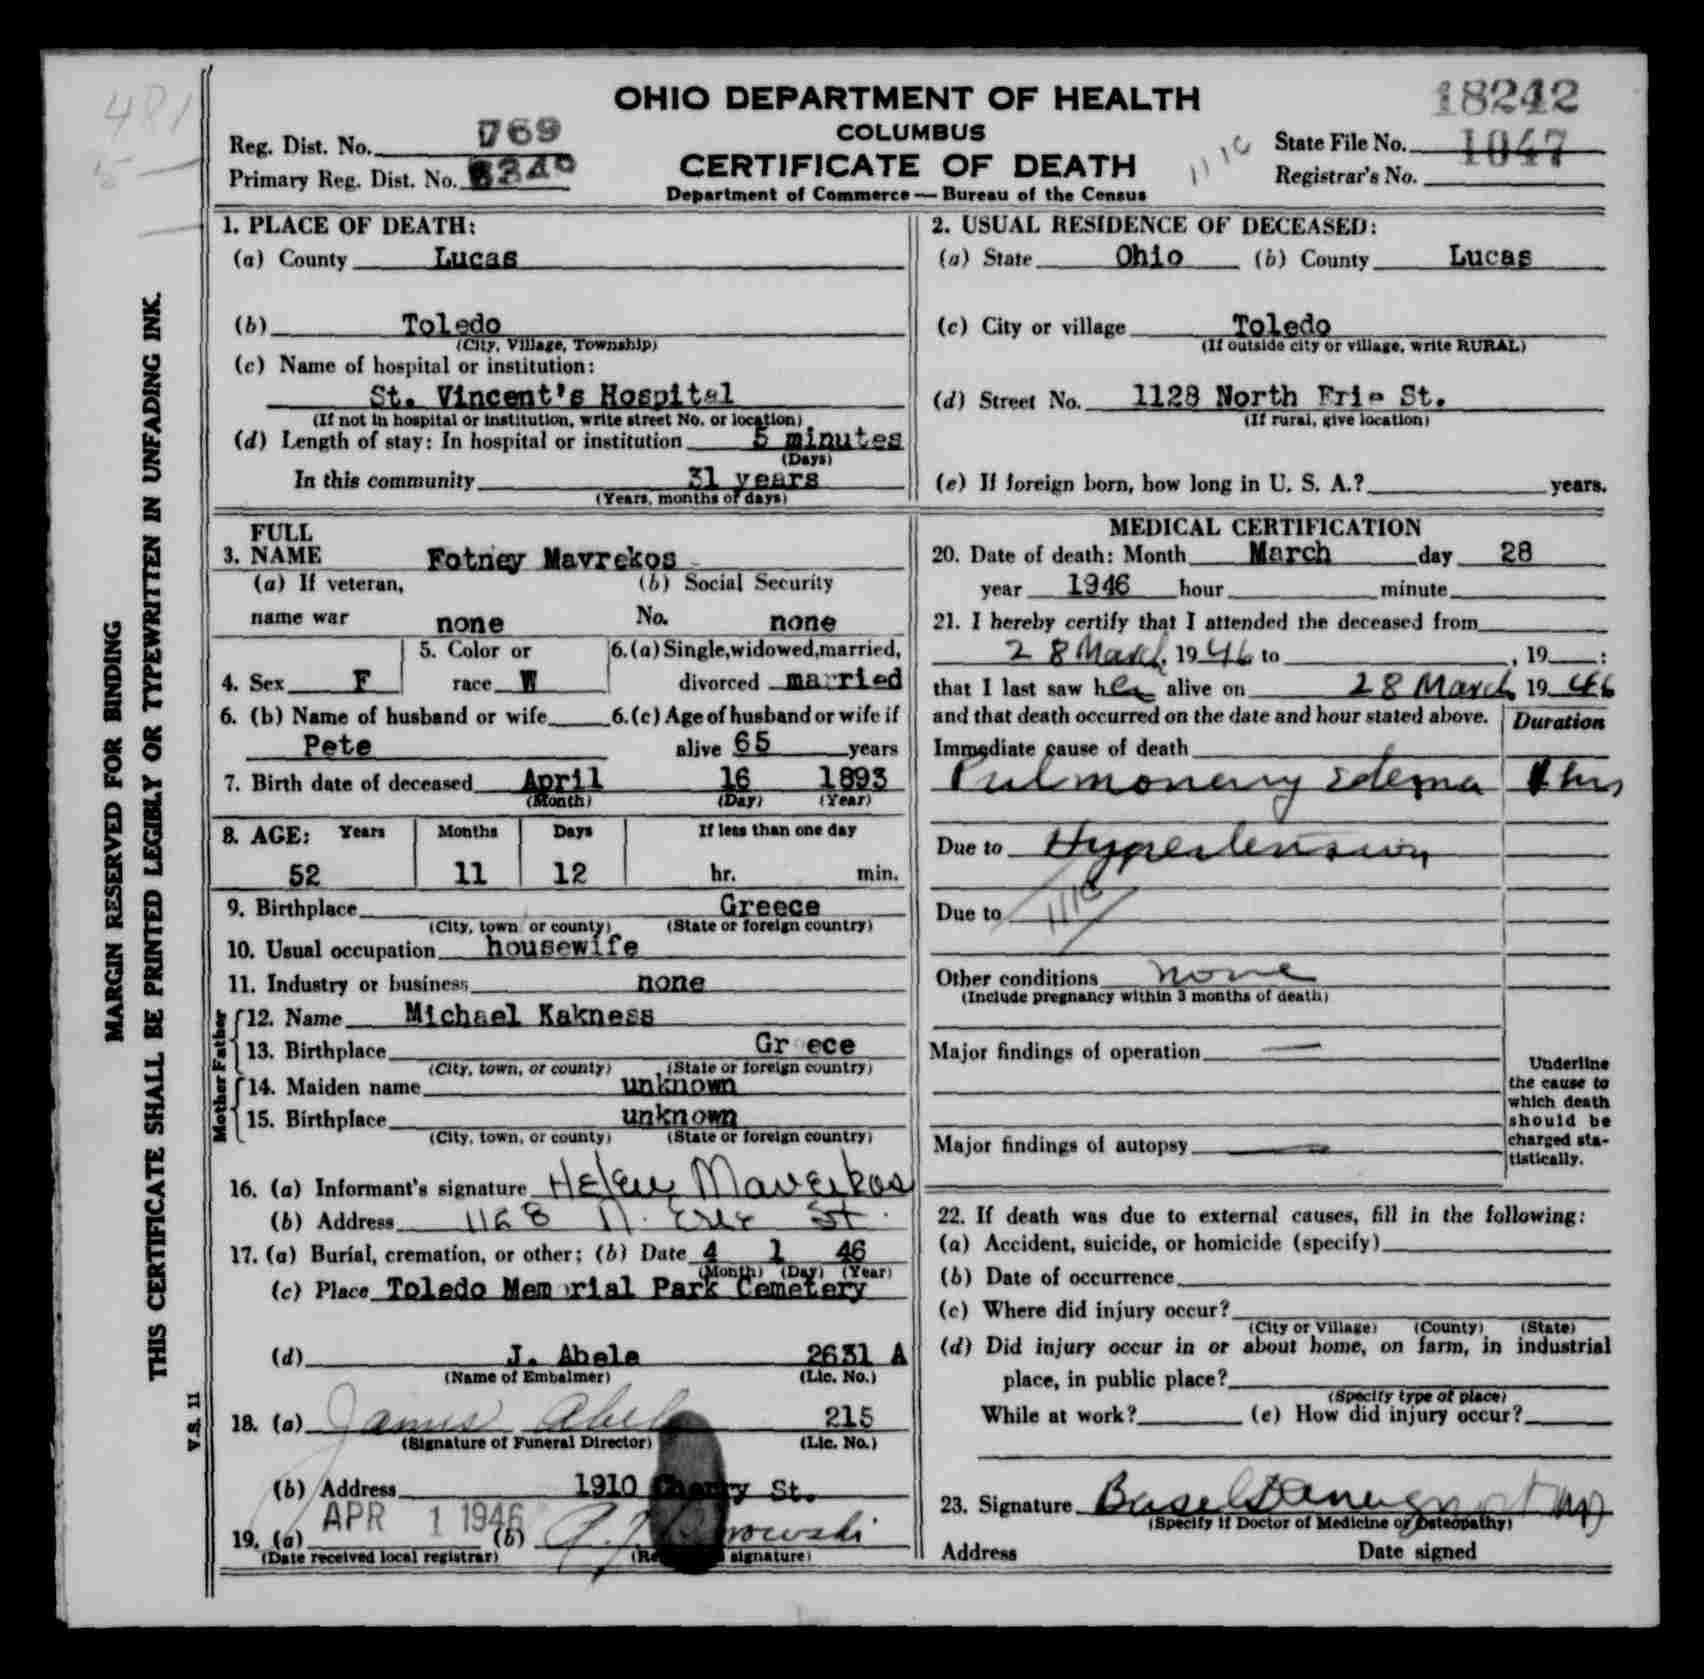 481
5 —
OHIO DEPARTMENT OF HEALTH
COLUMBUS
CERTIFICATE OF DEATH
Department of Commerce — Bureau of the Census
Reg. Dist. No. 769
Primary Reg. Dist. No.
1116
18242
State File No. 1047
Registrar's No.
MARGIN RESERVED FOR BINDING
THIS CERTIFICATE SHALL BE PRINTED LEGIBLY OR TYPEWRITTEN IN UNFADING INK.
V.S. 11
1. PLACE OF DEATH:
(a) County Lucas
(b) Toledo
(City, Village, Township)
(c) Name of hospital or institution:
St. Vincent's Hospital
(If not in hospital or institution, write street No. or location)
(d) Length of stay: In hospital or institution 5 minutes
(Days)
In this community 31 years
(Years, months or days)
2. USUAL RESIDENCE OF DECEASED:
(a) State Ohio (b) County Lucas
(c) City or village Toledo
(If outside city or village, write RURAL)
(d) Street No. 1128 North Erie St.
(If rural, give location)
(e) If foreign born, how long in U. S. A.? years.
FULL
3. NAME Fotney Mavrekos
(a) If veteran, (b) Social Security
name war none No. none
4. Sex F 5. Color or race W 6.(a) Single, widowed, married, divorced married
6. (b) Name of husband or wife 6.(c) Age of husband or wife if
Pete alive 65 years
7. Birth date of deceased April 16 1893
(Month) (Day) (Year)
8. AGE: Years Months Days If less than one day
52 11 12 hr. min.
9. Birthplace Greece
(City, town or county) (State or foreign country)
10. Usual occupation housewife
11. Industry or business none
Father
12. Name Michael Kakness
13. Birthplace Gr ece
(City, town, or county) (State or foreign country)
Mother
14. Maiden name unknown
15. Birthplace unknown
(City, town, or county) (State or foreign country)
16. (a) Informant's signature Helen Maverkos
(b) Address 1128 N. Erie St.
17. (a) Burial, cremation, or other; (b) Date 4 1 46
(Month) (Day) (Year)
(c) Place Toledo Mem rial Park Cemetery
(d) J. Abele 2631 A
(Name of Embalmer) (Lic. No.)
18. (a) James Abele 215
(Signature of Funeral Director) (Lic. No.)
(b) Address 1910 Cherry St.
19. (a) APR 1 1946 (b)
(Date received local registrar) (Re signature)
MEDICAL CERTIFICATION
20. Date of death: Month March day 28
year 1946 hour minute
21. I hereby certify that I attended the deceased from
28 March, 1946 to , 19 :
that I last saw her alive on 28 March 1946
and that death occurred on the date and hour stated above. Duration
Immediate cause of death
Pulmonery Edema 1 hrs
Due to Hypertension
Due to 1116
Other conditions none
(Include pregnancy within 3 months of death)
Major findings of operation —
Major findings of autopsy —
Underline
the cause to
which death
should be
charged sta-
tistically.
22. If death was due to external causes, fill in the following:
(a) Accident, suicide, or homicide (specify)
(b) Date of occurrence
(c) Where did injury occur?
(City or Village) (County) (State)
(d) Did injury occur in or about home, on farm, in industrial
place, in public place?
(Specify type of place)
While at work? (e) How did injury occur?
23. Signature
(Specify if Doctor of Medicine or Osteopathy)
Address Date signed